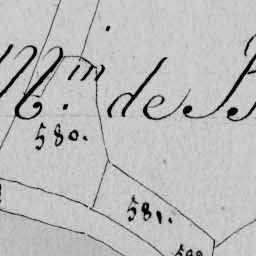 M.in de B
580.
581.